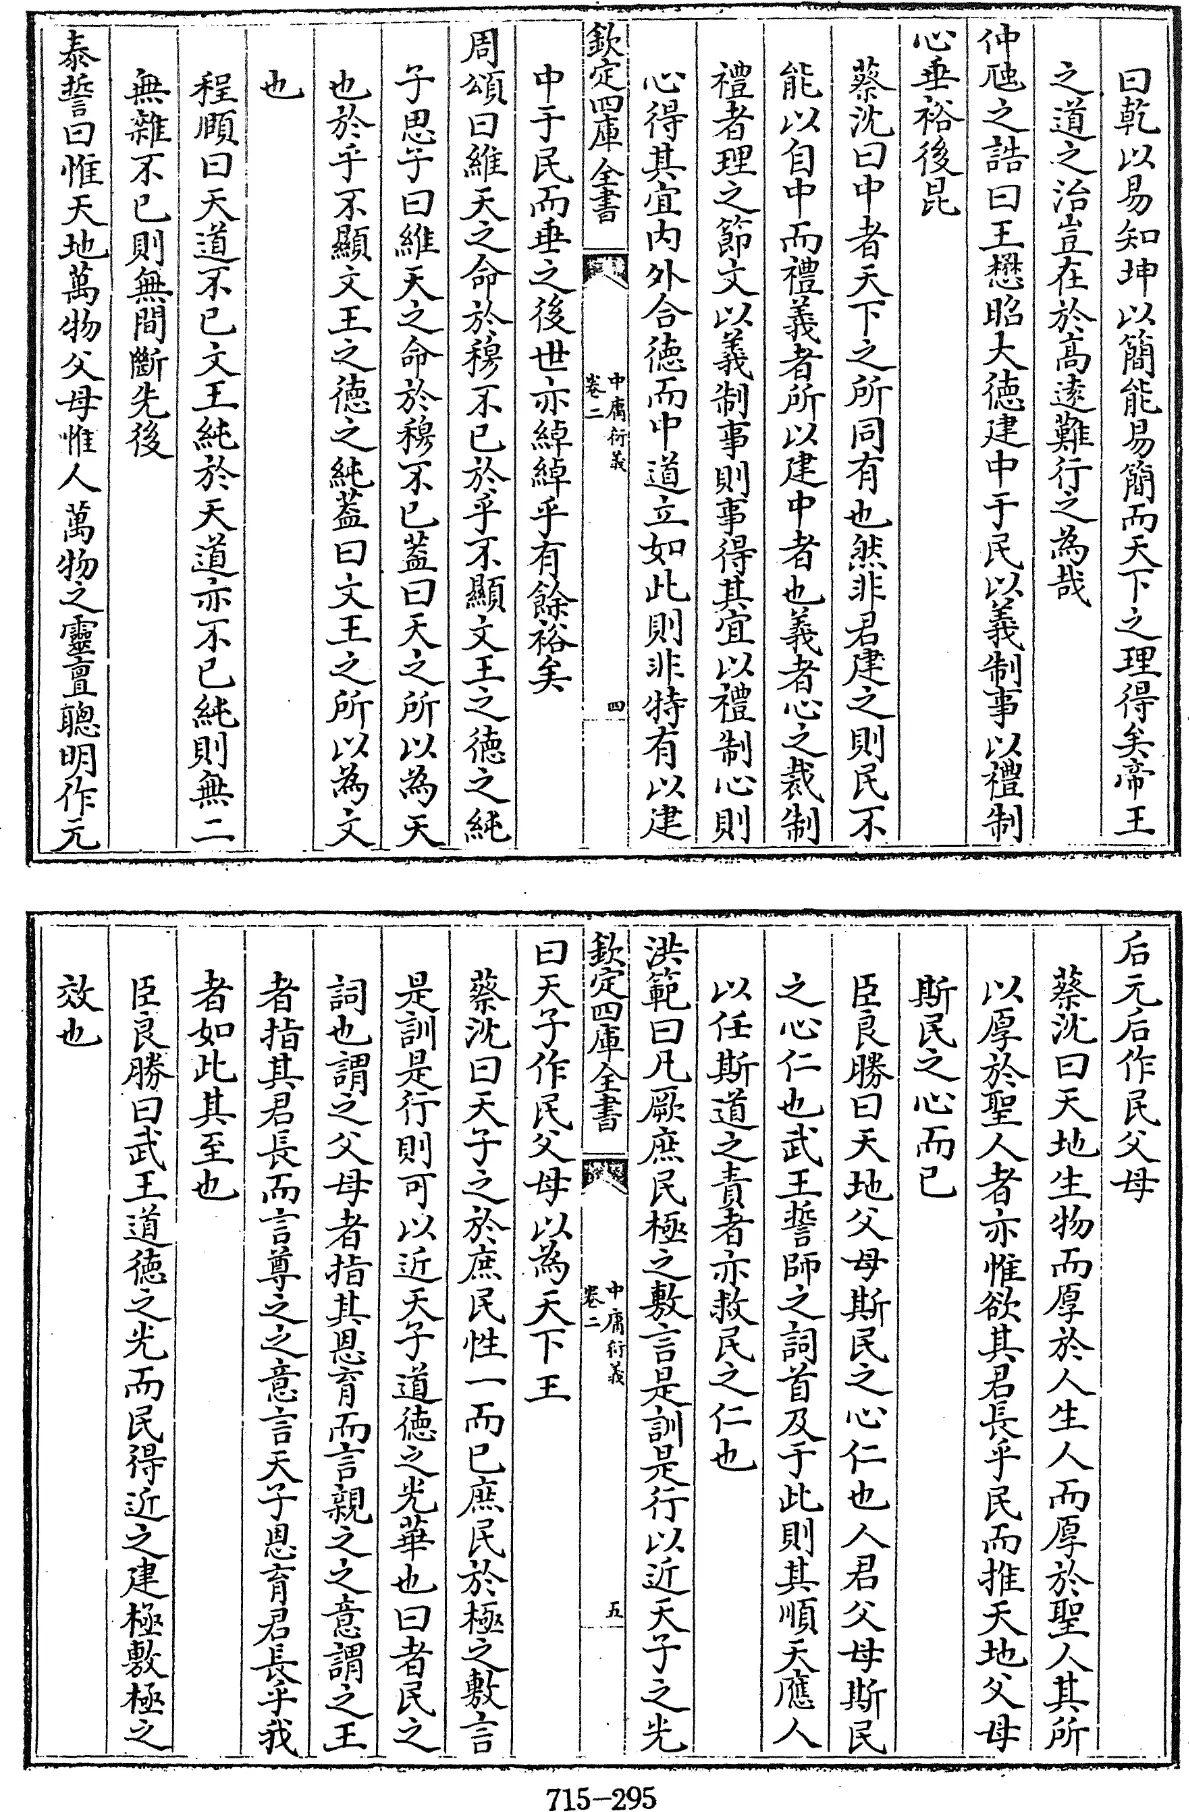 曰乾以易知坤以簡能易簡而天下之理得矣帝王
之道之治豈在於高遠難行之為哉
仲虺之誥曰王懋昭大德建中于民以義制事以禮制
心垂裕後昆
蔡沈曰中者天下之所同有也然非君建之則民不
能以自中而禮義者所以建中者也義者心之裁制
禮者理之節文以義制事則事得其宜以禮制心則
心得其宜內外合德而中道立如此則非特有以建
欽定四庫全書
中庸衍義
卷二
四
中于民而垂之後世亦綽綽乎有餘裕矣
周頌曰維天之命於穆不已於乎不顯文王之德之純
子思子曰維天之命於穆不已蓋曰天之所以為天
也於乎不顯文王之德之純蓋曰文王之所以為文
也
程頤曰天道不已文王純於天道亦不已純則無二
無雜不已則無間斷先後
泰誓曰惟天地萬物父母惟人萬物之靈亶聰明作元
后元后作民父母
蔡沈曰天地生物而厚於人生人而厚於聖人其所
以厚於聖人者亦惟欲其君長乎民而推天地父母
斯民之心而已
臣良勝曰天地父母斯民之心仁也人君父母斯民
之心仁也武王誓師之詞首及于此則其順天應人
以任斯道之責者亦救民之仁也
洪範曰凡厥庶民極之敷言是訓是行以近天子之光
欽定四庫全書
中庸衍義
卷二
五
曰天子作民父母以為天下王
蔡沈曰天子之於庶民性一而已庶民於極之敷言
是訓是行則可以近天子道德之光華也曰者民之
詞也謂之父母者指其恩育而言親之之意謂之王
者指其君長而言尊之之意言天子恩育君長乎我
者如此其至也
臣良勝曰武王道德之光而民得近之建極敷極之
效也
715-295